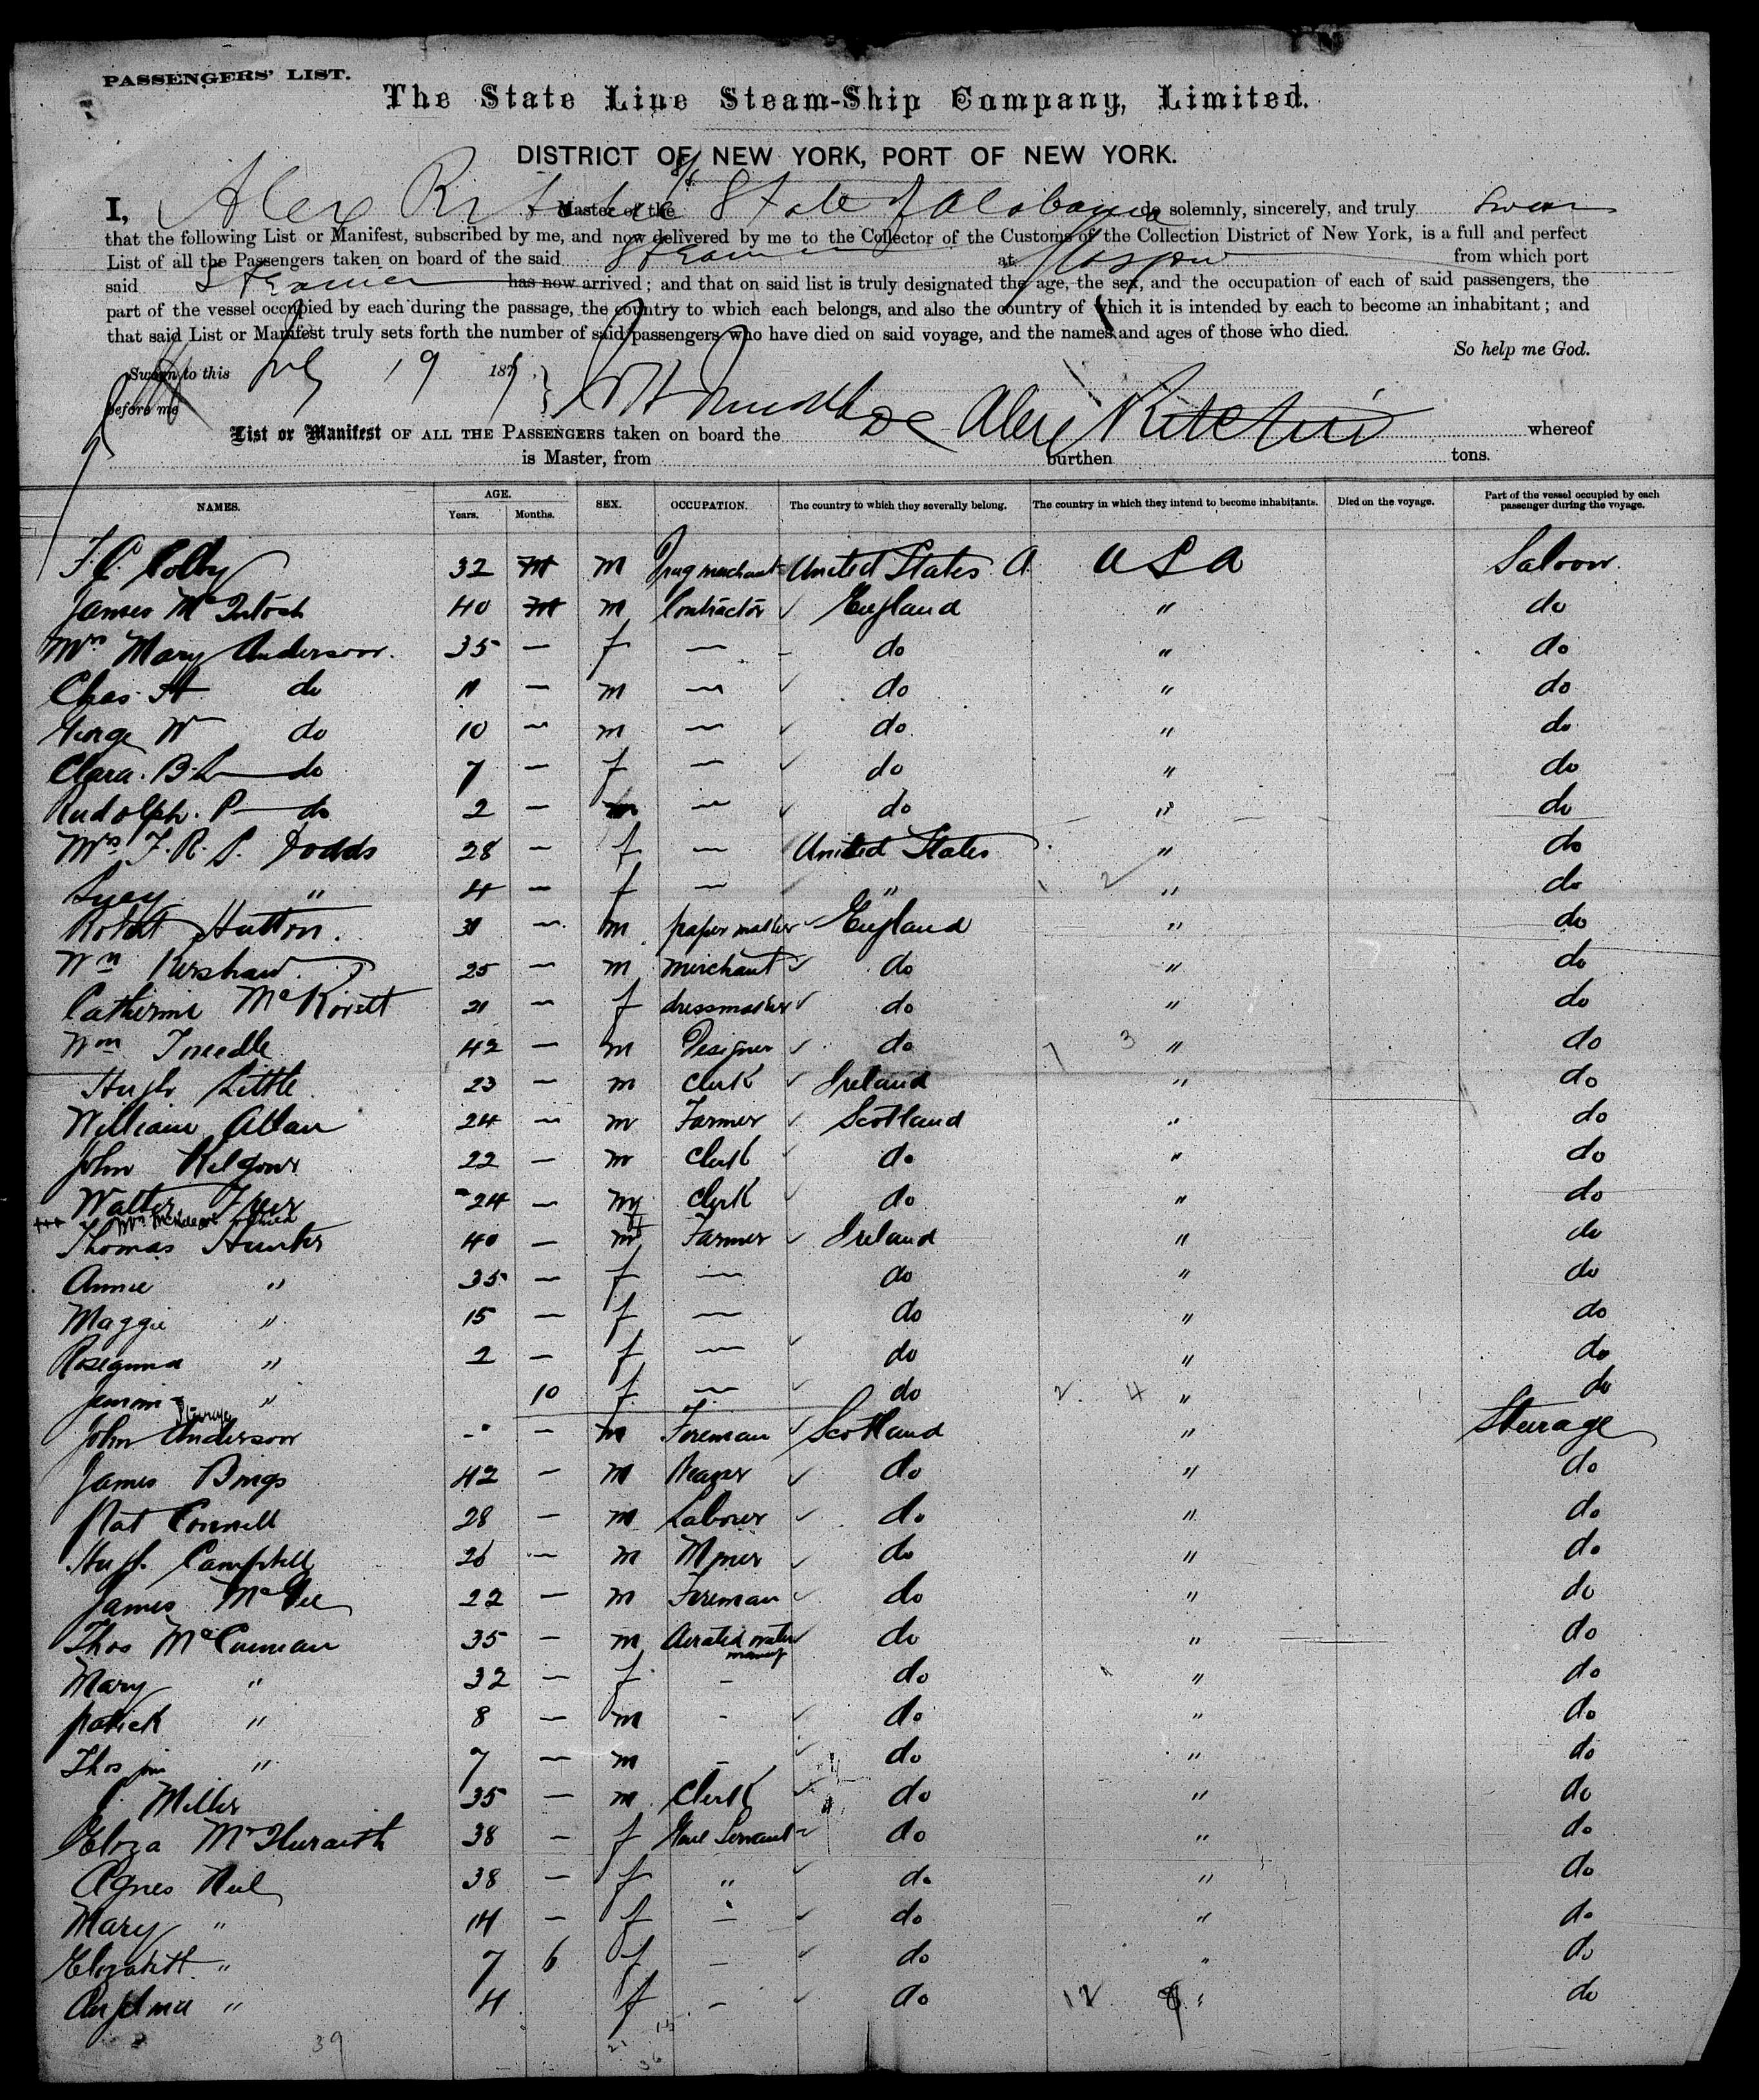 PASSENGERS' LIST.
The State Line Steam-Ship Company, Limited.
DISTRICT OF NEW YORK, PORT OF NEW YORK.
I, Alex Ritchie Master of the S/S State of Alabama do solemnly, sincerely, and truly swear
that the following List or Manifest, subscribed by me, and now delivered by me to the Collector of the Customs of the Collection District of New York, is a full and perfect
List of all the Passengers taken on board of the said Steamer at Glasgow from which port
said Steamer has now arrived; and that on said list is truly designated the age, the sex, and the occupation of each of said passengers, the
part of the vessel occupied by each during the passage, the country to which each belongs, and also the country of which it is intended by each to become an inhabitant; and
that said List or Manifest truly sets forth the number of said passengers who have died on said voyage, and the names and ages of those who died.
So help me God.
Sworn to this July 19 187
before me
Alex Ritchie
List or Manifest OF ALL THE PASSENGERS taken on board the whereof
is Master, from burthen tons.
NAMES. AGE. Years. Months. SEX. OCCUPATION. The country to which they severally belong. The country in which they intend to become inhabitants. Died on the voyage. Part of the vessel occupied by each passenger during the voyage.
F. C. Colby 32 m Drug merchant United States A U S A Saloon
James McIntosh 40 m Contractor England " do
Mrs Mary Anderson 35 — f — do " do
Chas. H do 11 — m — do " do
George W do 10 — m — do " do
Clara. B. L do 7 — f — do " do
Rudolph. P do 2 — m — do " do
Mrs F. R. P. Dodds 28 — f — United States " do
Lucy " 4 — f — " " do
Robert Hutton 31 — m paper maker England " do
Wm Kershaw 25 — m merchant do " do
Catherine 21 — f dressmaker do " do
Wm Tweedle 42 — m Designer do " do
Hugh Little 23 — m Clerk Ireland " do
William Allan 24 — m Farmer Scotland " do
John Kilgour 22 — m Clerk do " do
Walter Freer 24 — m Clerk do " do
Thomas Hunter 40 — m Farmer Ireland " do
Annie " 35 — f — do " do
Maggie " 15 — f — do " do
Roseanna " 2 — f — do " do
" 10 f — do " do
Steerage
John Anderson — m Foreman Scotland " Steerage
James 42 — m do " do
Pat Connell 28 — m Labourer do " do
Hugh Campbell 26 — m Miner do " do
James McGee 22 — m Foreman do " do
Thos 35 — m Aerated water manuf do " do
Mary " 32 — f - do " do
Patrick " 8 — m - do " do
Thos jun " 7 — m - do " do
Miller 35 — m Clerk do " do
Eliza 38 — f Servant do " do
Agnes Neil 38 — f " do " do
Mary " 14 — f — do " do
Elizabeth " 7 6 f — do " do
" 4 f — do " do
39